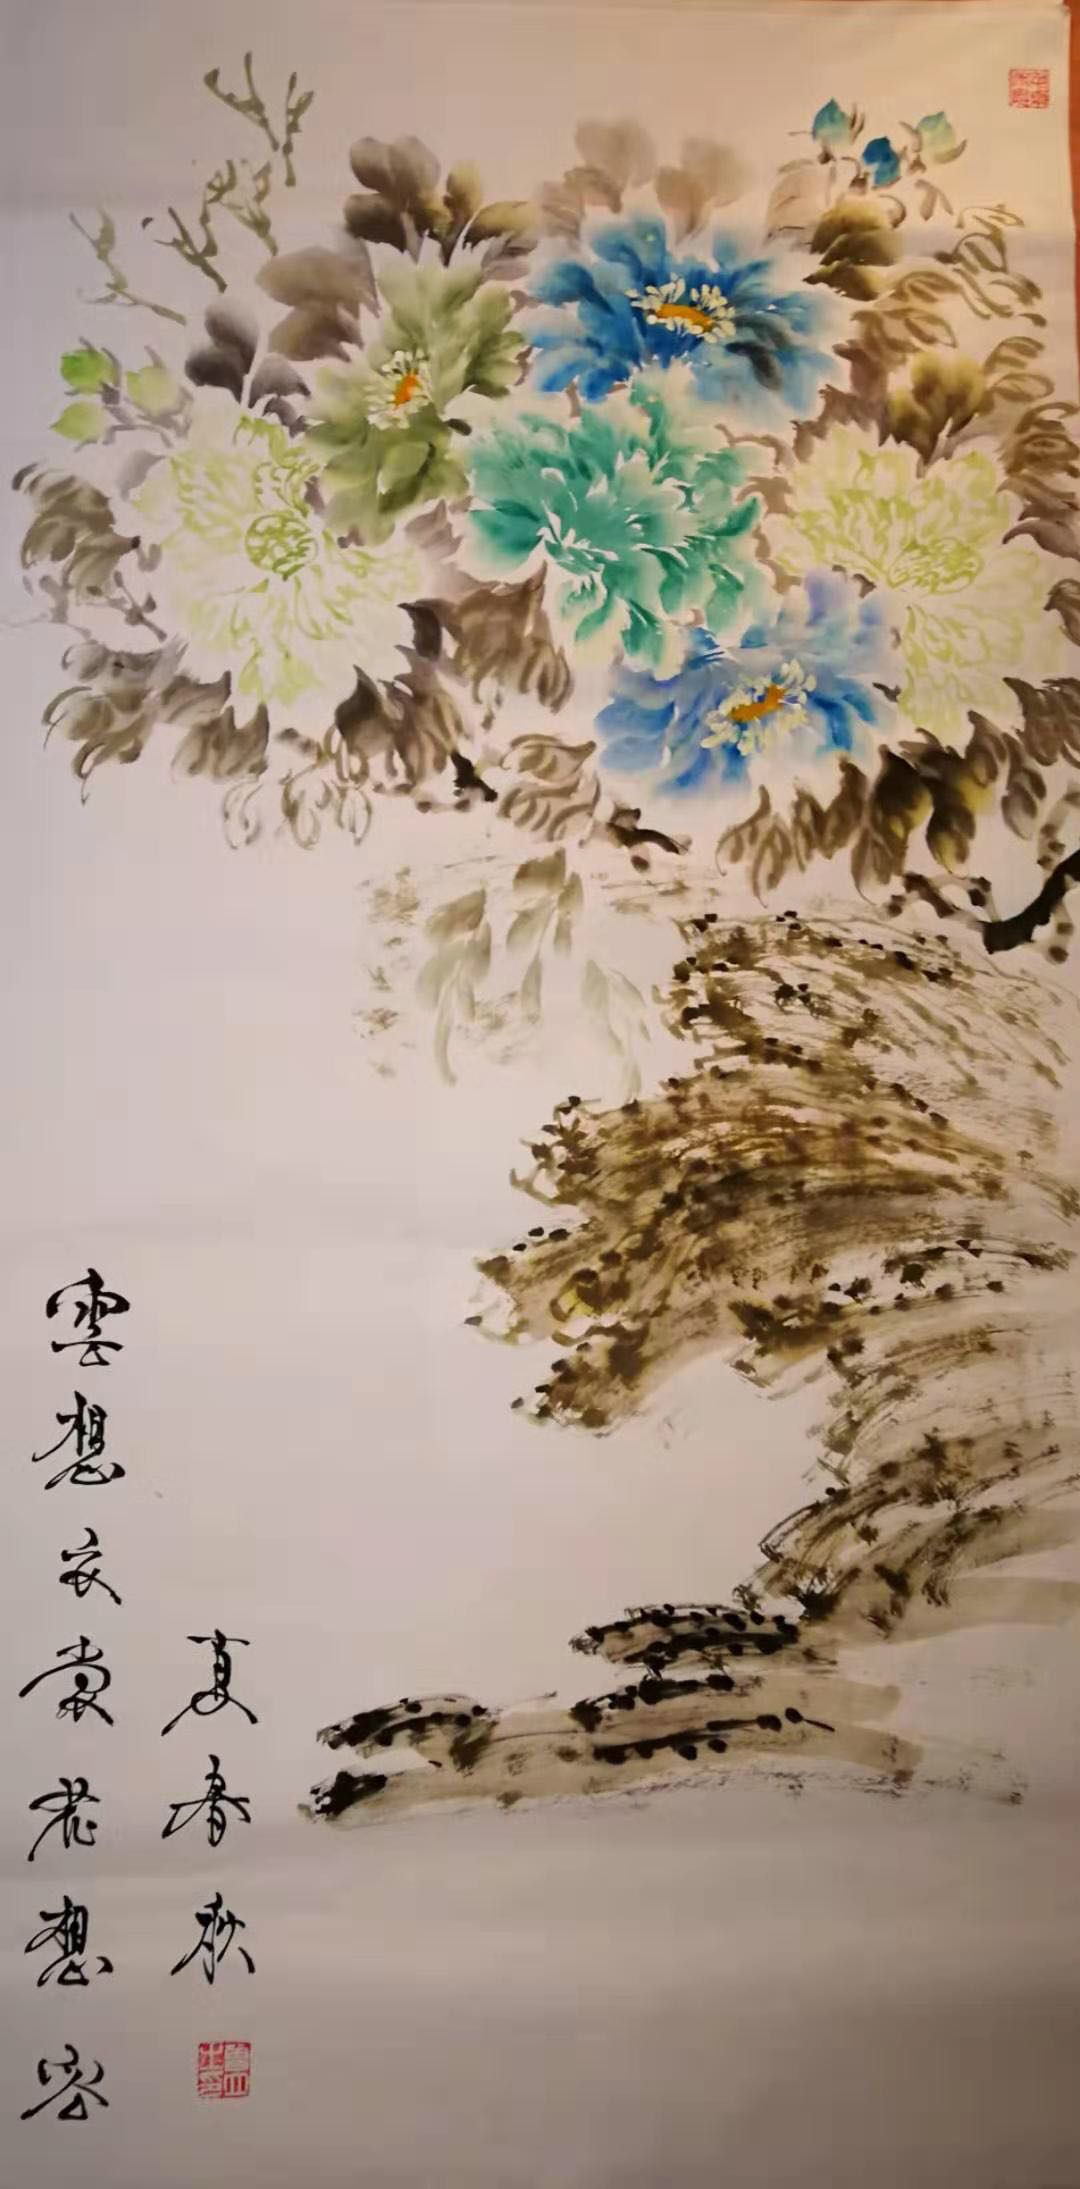 雲想衣裳花想容
夏春秋